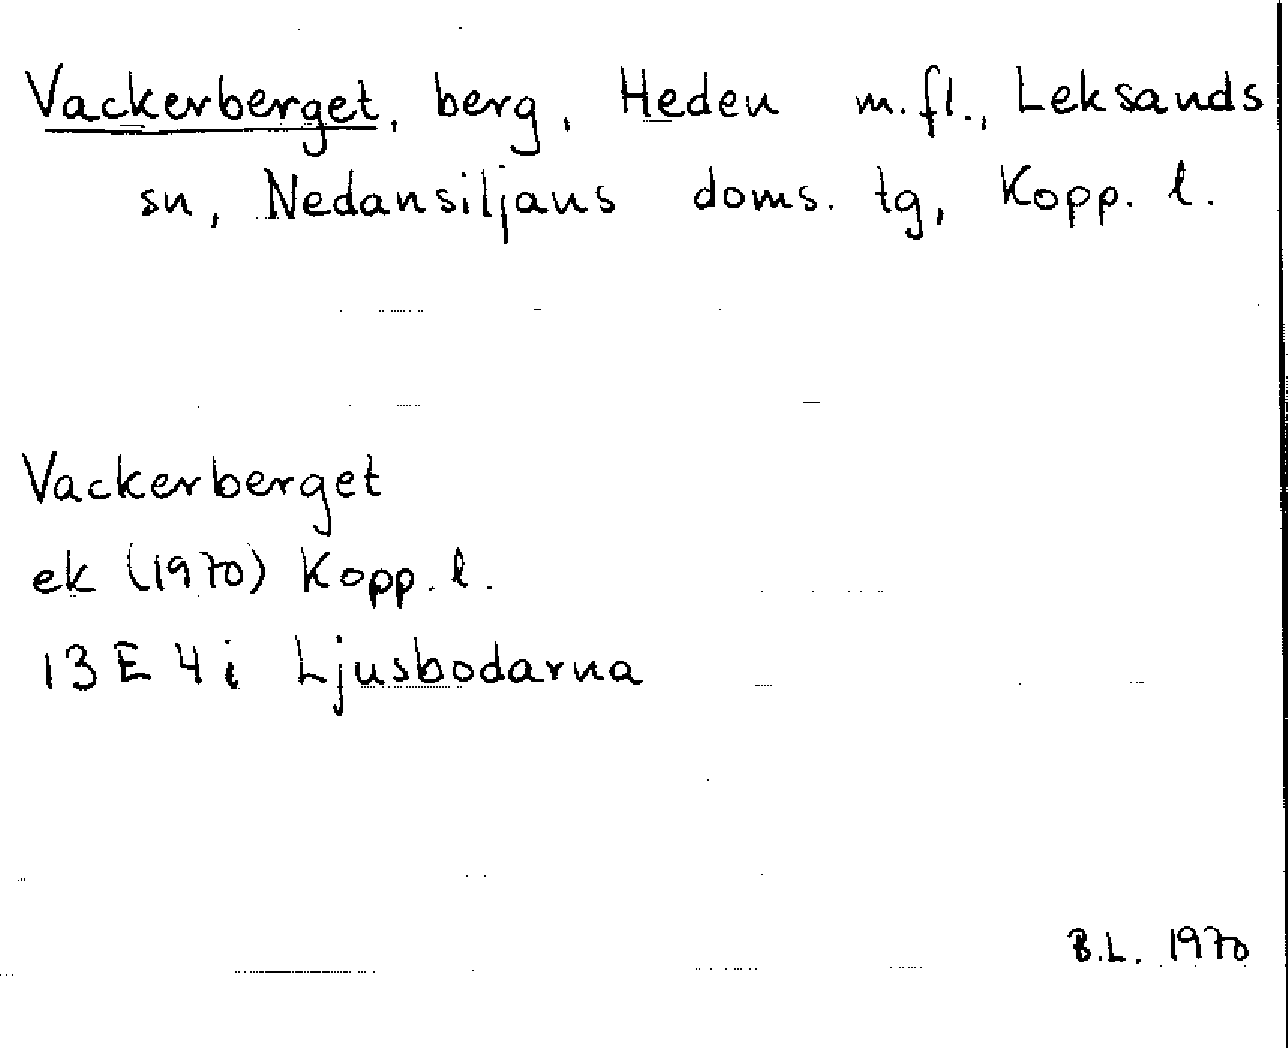 Vackerberget, berg, Heden m.fl., Leksands
sn, Nedansiljans doms. tg, Kopp. l.
Vackerberget
ek (1970) Kopp. l.
13 E 4 i Ljusbodarna
B.L. 1970